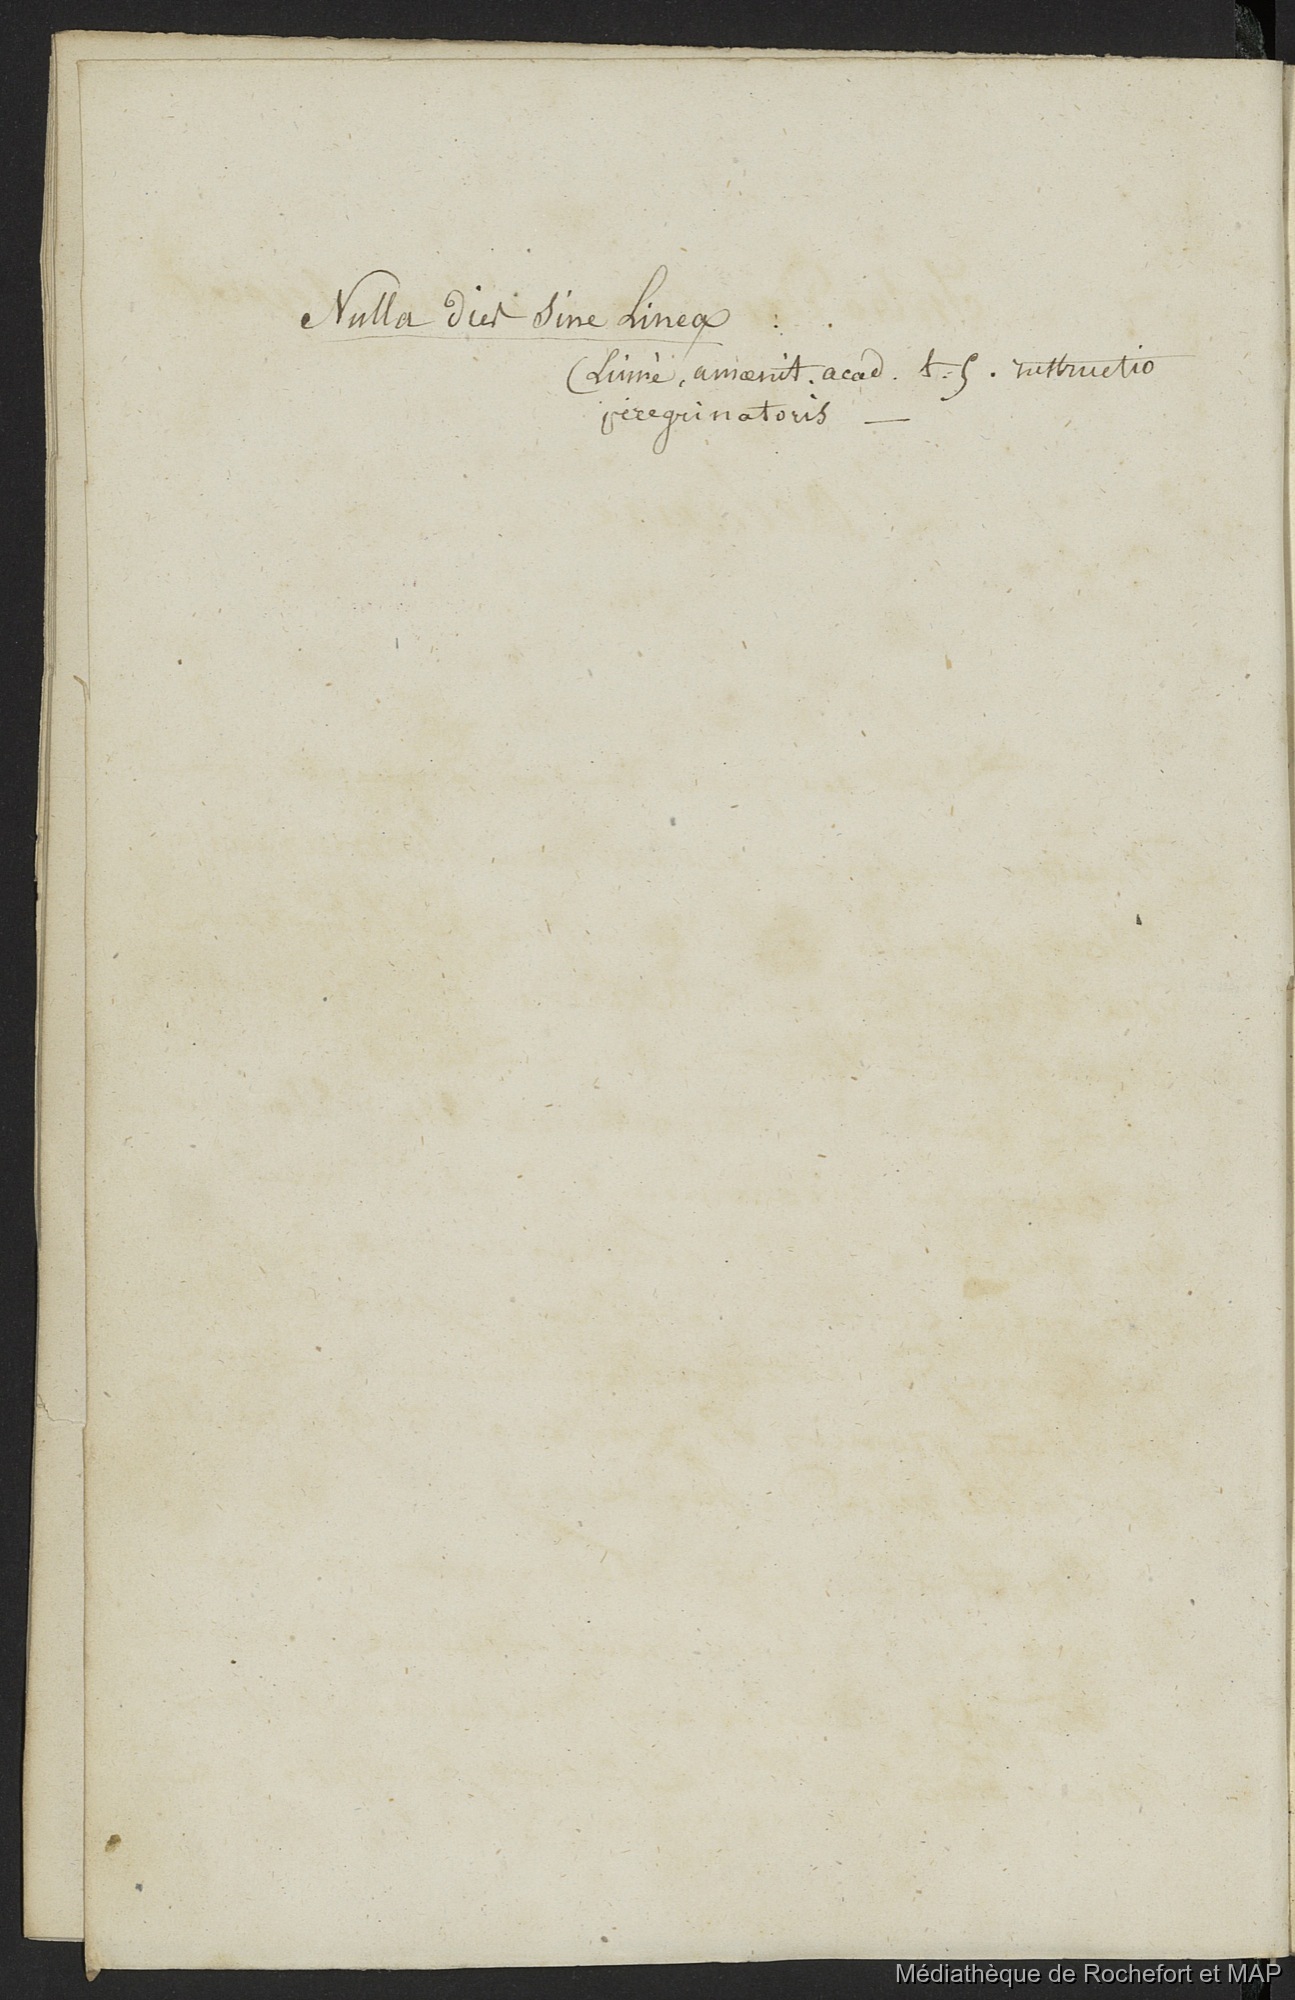 Nulla dies sine Linea :.
(Linné, amœnit. acad. t. 5. instructio
peregrinatoris —
Médiathèque de Rochefort et MAP